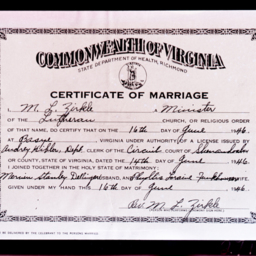 COMMONWEALTH OF VIRGINIA
STATE DEPARTMENT OF HEALTH, RICHMOND
CERTIFICATE OF MARRIAGE
I, M. L. Zirkle Minister
OF THE Lutheran CHURCH, OR RELIGIOUS ORDER
OF THAT NAME, DO CERTIFY THAT ON THE 16th DAY OF June 1946.
AT VIRGINIA UNDER AUTHORITY OF A LICENSE ISSUED
BY Audrey Dept CLERK OF THE Circuit COURT OF Shenandoah
OR COUNTY, STATE OF VIRGINIA, DATED THE 14th DAY OF June 1946.
I JOINED TOGETHER IN THE HOLY STATE OF MATRIMONY:
Marion Stanley HUSBAND, AND Phyllis Loraine WIFE.
GIVEN UNDER MY HAND THIS 16th DAY OF June 1946
Rev. M. L. Zirkle
TO BE DELIVERED BY THE CELEBRANT TO THE PERSONS MARRIED.